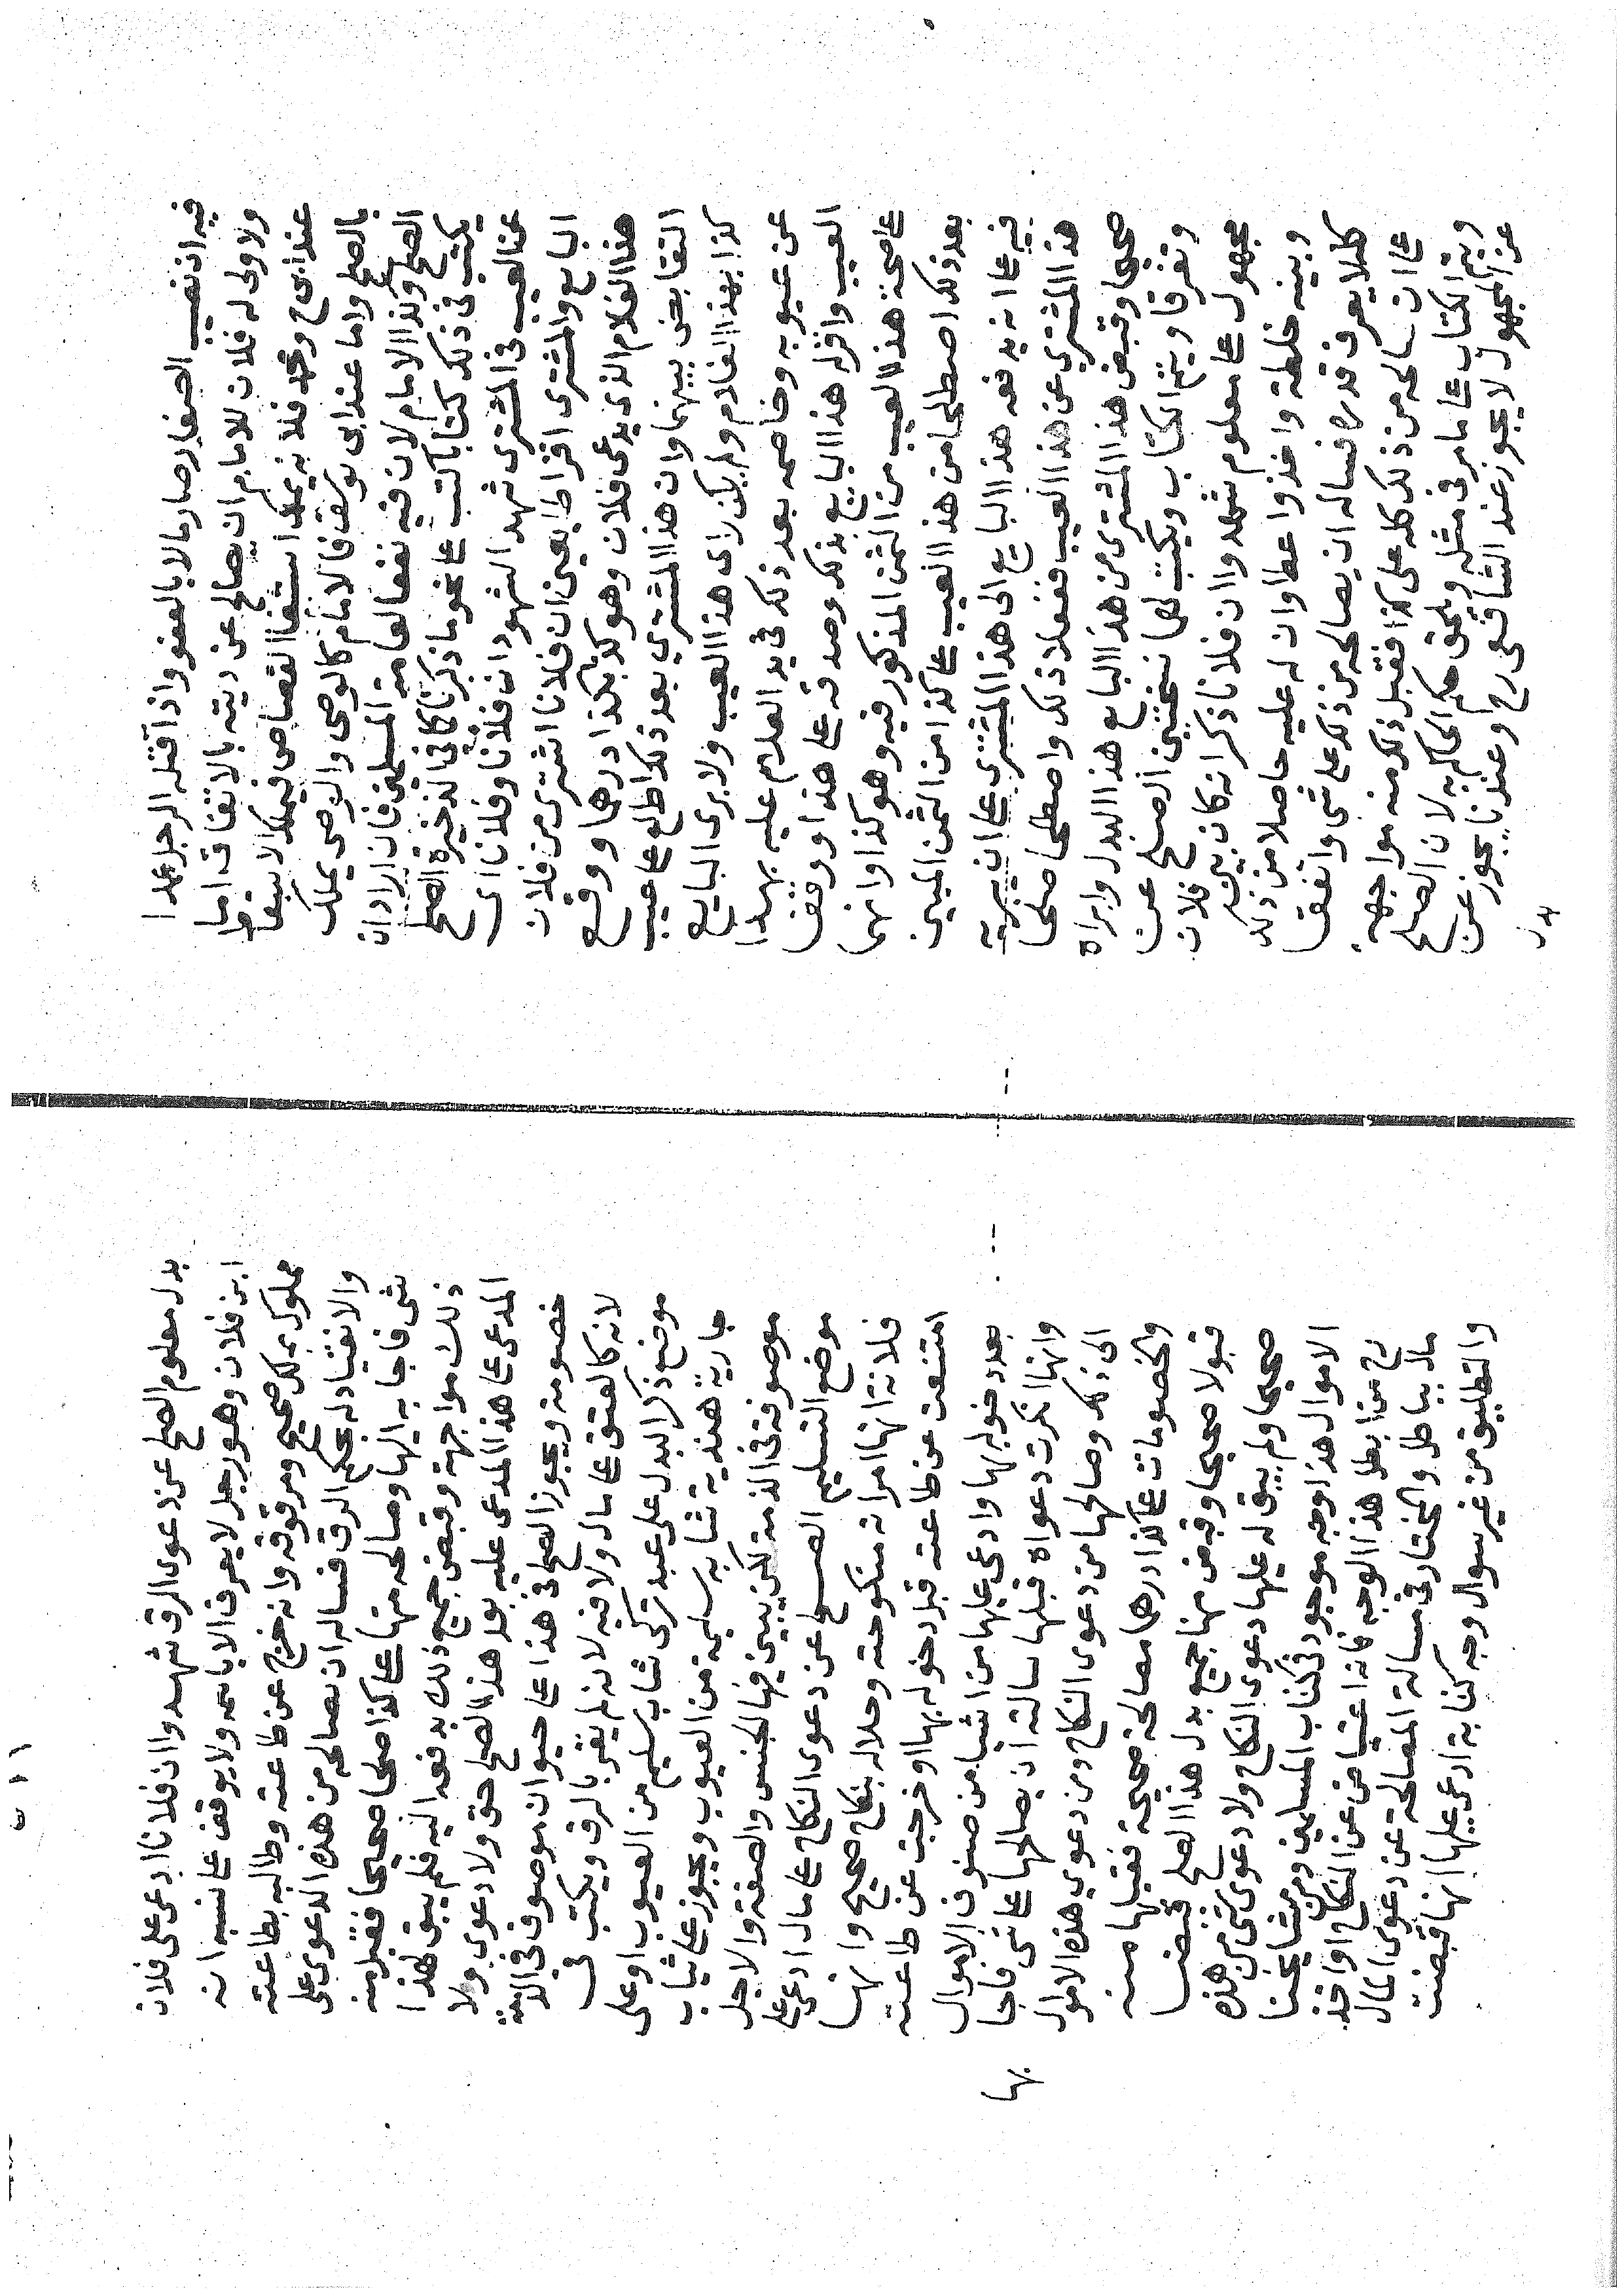 فيه اذ نصيب الصغار صار مالا بالعفو واذا قتله الرجل عمدا
ولا ولى له فلان للامام ان يصالح عن ديته بالاتفاق اما
عند ابى ح ومحمد فلانه يملك استيفا القصاص فيملك الاسقاط
بالصلح واما عند ابى يوسف فالامام كالوصى والوصى يملك
الصلح وكذا الامام لان فيه نفعا لعامة المسلمين فان اراد ان
يكتب فى ذلك كتابا كتب على نحو ما ذكرنا كما فى الذخيرة الصلح
عن العيب فى المشترى شهد الشهود ان فلانا وفلانا اى
البايع والمشترى اقرا طايعين ان فلانا اشترى من فلان
هذا الغلام الذى يدعى فلان وهو كذا بكذا درهما ووقع
التقابض بينهما وان هذا المشترى بعد ذلك اطلع على عيب
كذا بهذا الغلام ولم يكن راى هذا العيب ولا برى البايع
عن عيوبه وخاصمه بعد ذلك فى يد الغلام عليه بهذا
العيب واقر له هذا البايع بذلك وصدقه على هذا ووقف
على صحة هذا العيب من الثمن المذكور فيه وهو كذا وانهما
بعد ذلك اصطلحا من هذا العيب على كذا من الثمن المبين
فيه على انه يدفعه هذا البايع الى هذا المشترى على ان يبريه
هذا المشترى عن هذا العيب ففعلا ذلك واصطلحا صلحا
صحيحا وقبض هذا المشترى من هذا البايع هذا البدل وابراه
وتفرقا ويتم الكتاب ويكتب لها نسختين الصلح عن
مجهول على معلوم شهدوا ان فلانا ذكر انه كان بين فلان
وبينه خلطة واخذ واعطا وان له عليه حاصلا من ذلك
كله لا يعرف قدره فساله ان يصالحه من ذلك على شى واتفقا
على ان صالحه من ذلك كله على كذا فقبل ذلك منه مواجهة
ويتم الكتاب على ما مر فى مثله ويلحق حكم الحاكم به لان الصلح
عن المجهول لا يجوز عند الشافعى رح وعندنا يجوز عن
بدل
بدل معلوم الصلح عن دعوى الرق شهدوا ان فلانا ادعى على فلان
ابن فلان وهو رجل لا يعرف الا باسمه ولا يوقف على نسبه انه
مملوك يملك صحيح ومرقوقه وانه خرج عن طاعته وطالبه بطاعته
والانقياد له بحكم الرق فساله ان يصالحه من هذه الدعوى على
شى فاجابه اليها وصالحه منها على كذا صلحا صحيحا فقبل منه
ذلك مواجهة وقبض جميع ذلك بدفعه اليه فلم يبق لهذا
المدعى على هذا المدعى عليه بعد هذا الصلح حق ولا دعوى ولا
خصومة ويجوز الصلح فى هذا على حيوان موصوف فى الذمة
لانه كالعتق على مال ولا فيه لانه لم يقر بالرق ويكتب فى
موضع ذكر البدل على عبد تركى شاب سليم من العيوب او على
جارية هندية شابه سليمة من العيوب ويجوز على ثياب
موصوفة فى الذمة لكن يبين فيها الجنس والصفة والاجل
موضع التسليم الصلح عن دعوى النكاح على مال ادعى على
فلانة انها امراته منكوحته وحلاله بنكاح صحيح وانها
امتنعت عن طاعته قبل دخوله بها او خرجت عن طاعته
بعد دخوله بها وادعى عليها من اشيا من صنوف الاموال
وانها انكرت دعواه قبلها سالته ان يصالحها على شى فاجا
بها
الى ذلك وصالحها من دعوى النكاح ومن دعوى هذه الاموال
والخصومات على كذا درهما مصالحة صحيحة فقبلها منه
قبولا صحيحا وقبض منها جميع بدل هذا الصلح قبضا
صحيحا ولم يبق له عليها دعوى النكاح ولا دعوى شى من هذه
الاموال هذا وجه موجود فى كتاب المسلمين ومن مشايخنا
رح من ابطل هذا الوجه فانه اعتياض عن النكاح واخذ
مال بباطل والمختار فى مسالة المصالحة عن دعوى المال
والتطليق من غير سوال وجه كتابة ادعى عليها انها قبضت